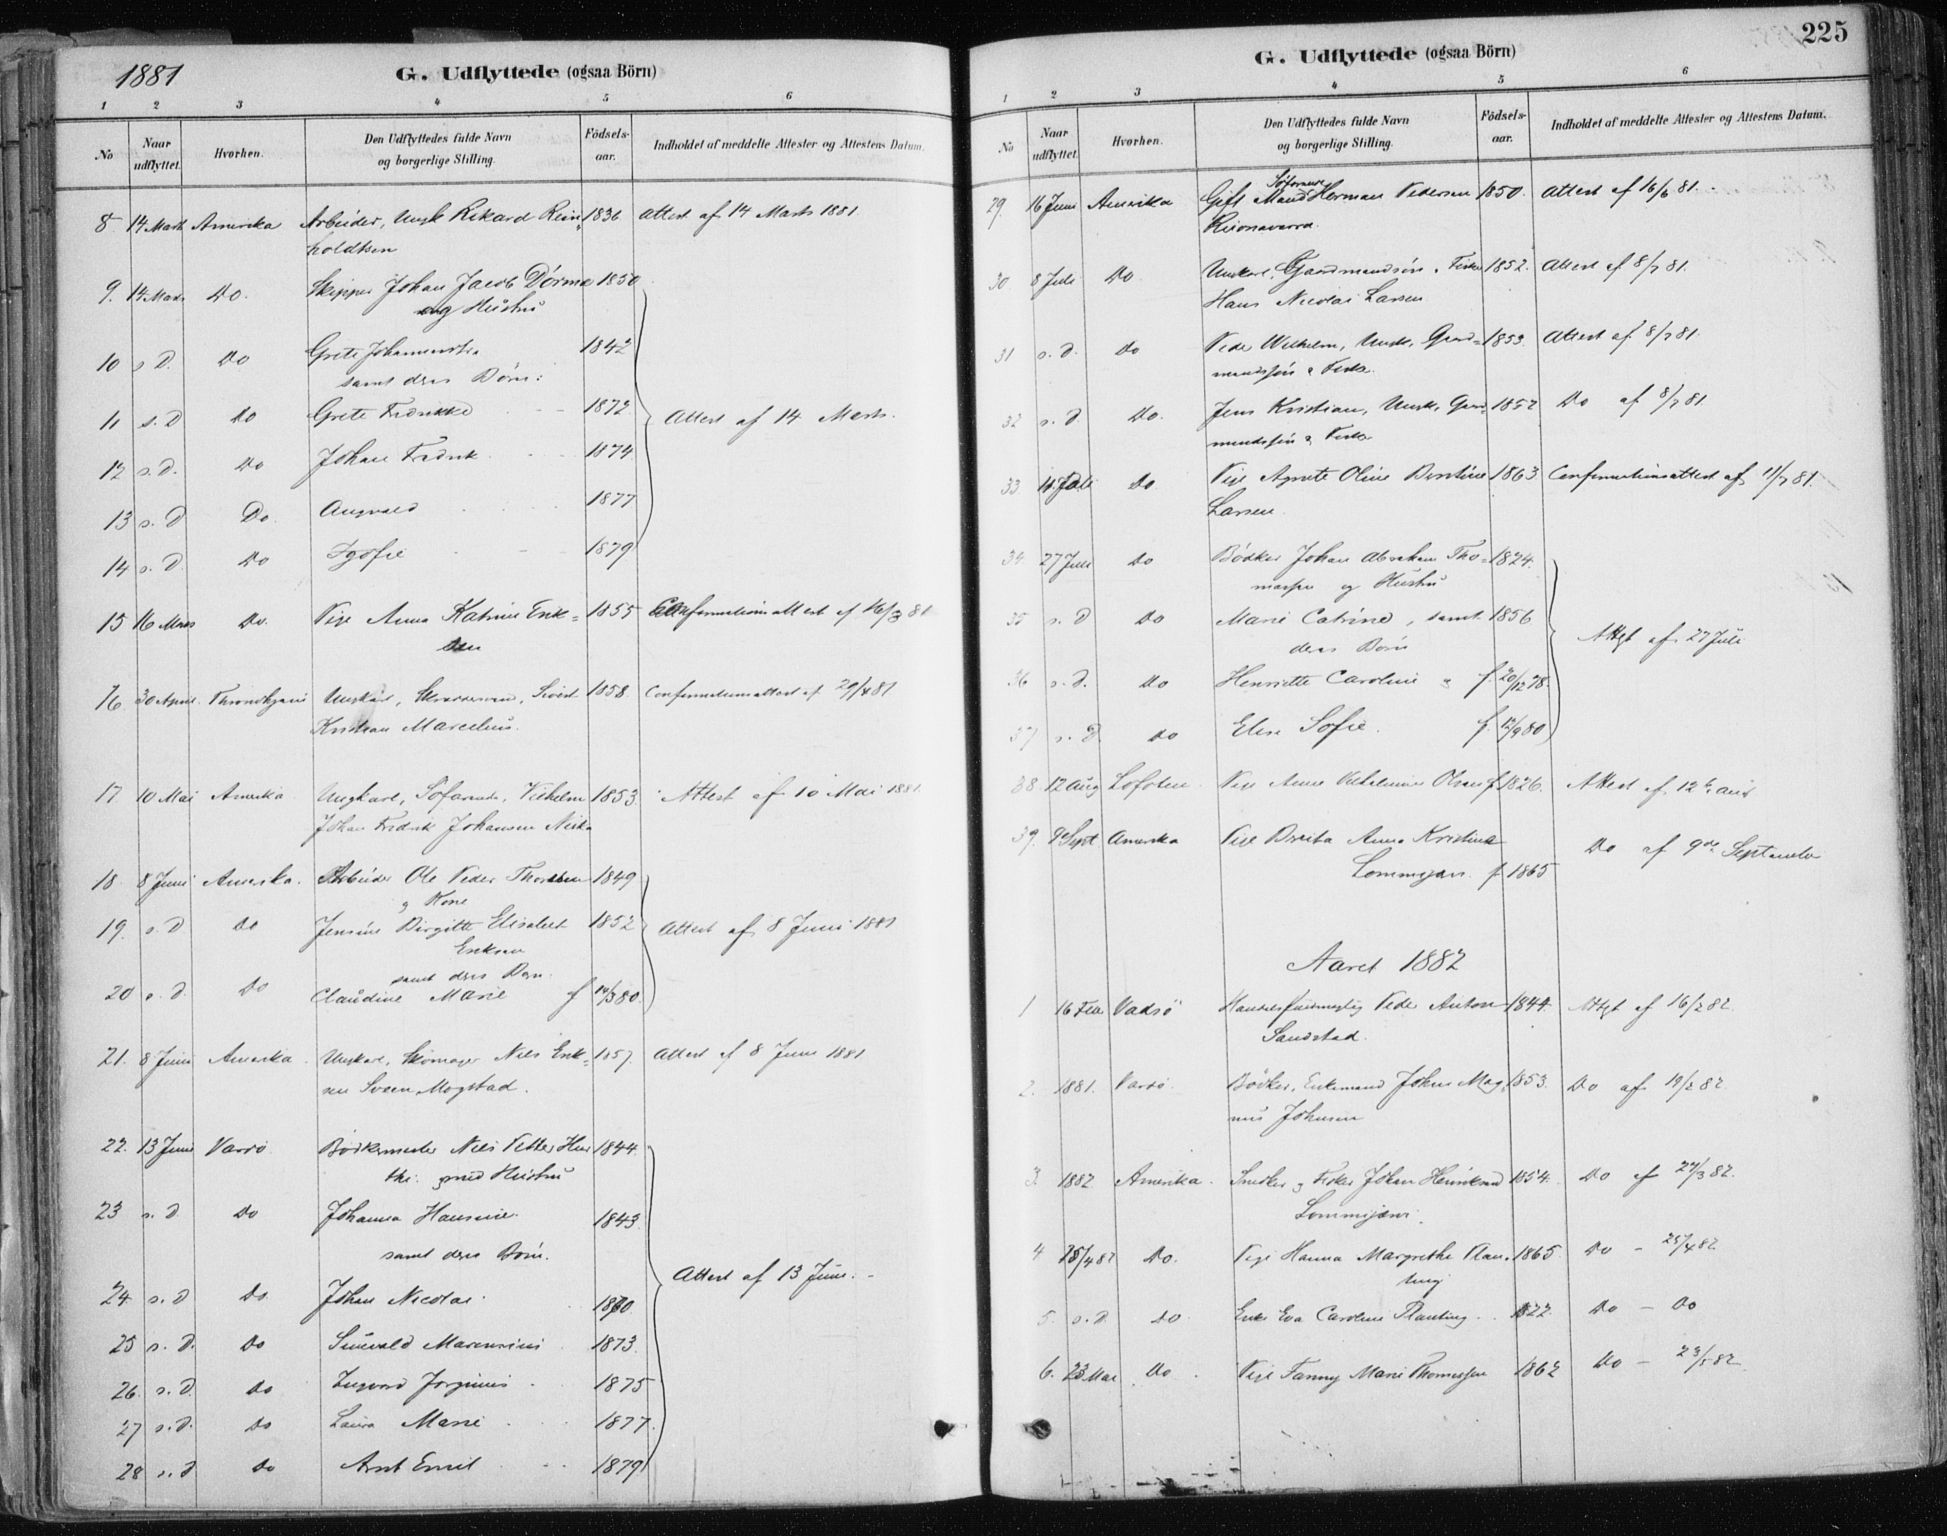 1881
G. Udflyttede (ogsaa Börn)
1 2 3 4 5 6
No
Naar udflyttet.
Hvorhen.
Den Udflyttedes fulde Navn og borgerlige Stilling.
Födsels-aar.
Indholdet af meddelte Attester og Attestens Datum.
8 14 Marts Amerika Arbeider, Ungk Rikard Rein- 1836 Attest af 14 Marts 1881
holdtsen
9. 14 Marts Do. Skipper Johan Jacob 1850
og Hustru
10 s. D. Do Grete 1842
samt deres Børn:
11 s. D Do Grete Fredrikke 1872 Attest af 14 Marts.
12 s. d. Do Johan Fredrik 1874
13 s. D Do Angvald 1877
14 s. D. Do 1879
15 16 Marts Do. Pige Anna Katrine Erik- 1855 Confirmationsattest af 16/3 81
sen
16 30 April Throndhjem Ungkarl, Sivert 1858. Confirmationsattest af 29/4 81
Kristian Marcelius.
17 10 Mai Amerika Ungkarl, Vilhelm 1853. Attest af 10 Mai 1881.
Johan Fredrik Johansen
18 8 Juni Amerika. Arbeider Ole Peder 1849
og Kone
19. s. D Do Jensine Birgitte Elisabet 1852 Attest af 8 Juni 1881
Eriksen
samt deres Børn.
20 s. d. Do Claudine Marie f 14/3 80.
21. 8 Juni Amerika Ungkarl, Skomager Nils Erik- 1857 Attest af 8 Juni 1881
sen Mogstad.
22. 13 Juni Vardø Bødkermester Niels Petter 1844.
med Hustru
23 s. d. Do Johanna 1843.
samt deres Børn.
24. s. d Do. Johan Nicolai 1870. Attest af 13 Juni.
25 s. D. Do 1873.
26. s. d. Do Ingvard 1875
27 s. d. Do Laura Marie 1877.
28 s. d Do Arnt Emil 1879
225
G. Udflyttede (ogsaa Börn)
1 2 3 4 5 6
No
Naar udflyttet.
Hvorhen.
Den Udflyttedes fulde Navn og borgerlige Stilling.
Födsels-aar.
Indholdet af meddelte Attester og Attestens Datum.
29. 16 Juni Amerika Gift Mand Herman Pedersen 1850. Attest af 16/6 81.
30. 8 Juli Do Ungkarl, Gaardmandssøn, Fisker 1852. Attest af 8/7 81.
Hans Nicolai Larsen
31 s. d. Do Peder Wilhelm, Ungk, Gaard- 1853. Attest af 8/7 81.
mandssøn & Fisker.
32 s. d. Do. Jens Kristian, Ungk, Gaard- 1852 Do af 8/7 81.
mandssøn & Fisker
33 11 Juli Do Pige Agnete Oline Berntine 1863 Confirmationsattest af 11/7 81.
Larsen
34. 27 Juli Do Bødker Johan Abraham Tho- 1824.
massen og Hustru
35 s. d Do Marie Catrine, samt 1856
deres Børn Attest af 27 Juli
36 s. d. Do Henriette Caroline & f 20/12 78.
37 s. d. Do Elise Sofie. f. 12/9 80
38. 12 Aug Lofoten Pige Anne Vilhelmine Olsen f 1826. Attest af 12te Aug
39. 9 Sept Amerika Pige Breita Anna Kristina Do af 9de September
f 1865
Aaret 1882
1 16 Feb Vadsø Peder Anton 1844. Attest af 16/2 82.
Sandstad.
2. 1881. Vardø. Bødker, Enkemand Johan Mag- 1853. Do af 19/2 82
nus Johnsen
3. 1882 Amerika. Snedker & Fisker Johan Henriksen 1854. Do af 27/3 82.
4 25/4 82 Do. Pige Hanna Margrethe Plan- 1865. Do - 25/4 82
ting
5. s. d. Do Enke Eva Caroline Planting 1822. Do - Do
6. 23 Mai Do. Pige Fanny Marie Thomassen 1862 Do - 23/5 82